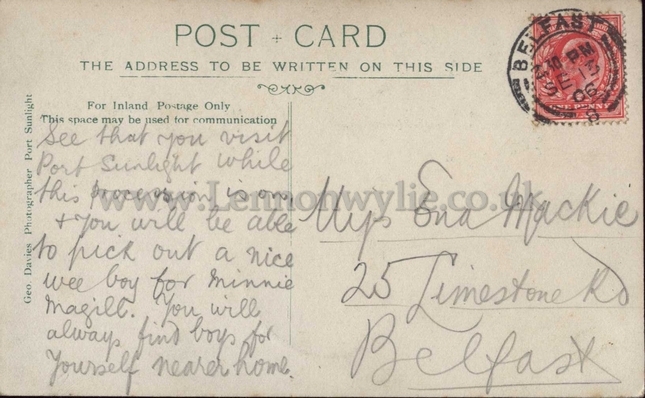 POST + CARD
THE ADDRESS TO BE WRITTEN ON THIS SIDE
For Inland Postage Only
This space may be used for communication
See that you visit
Port Sunlight while
this procession is on
& you will be able
to pick out a nice
wee boy for Minnie
Magill. You will
always find boys for
yourself nearer home.
Miss Ena Mackie
25 Limestone Rd
Belfast
Geo. Davies Photographer Port Sunlight
BELFAST
PM
SE 13
06
ONE PENNY
www.Lennonwylie.co.uk